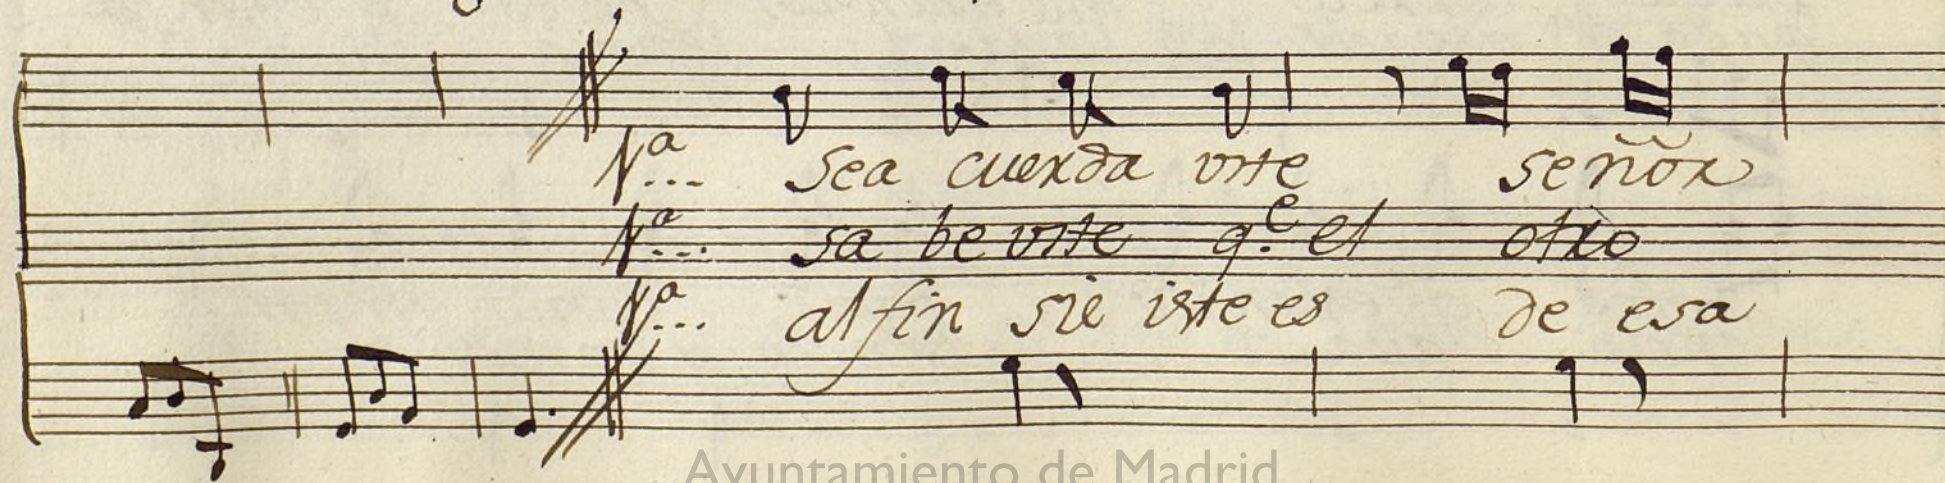 Nª... Sea cuerda uste señor
Nª... sa be uste q.e el otro
Nª... al fin si e iste es de esa
Ayuntamiento de Madrid